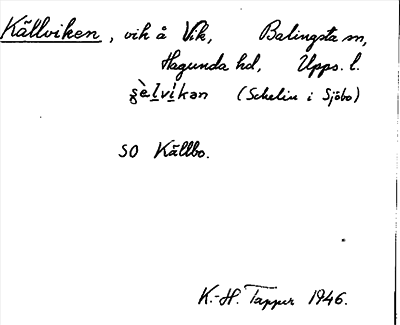 Källviken, vik å Vik, Balingsta sn,
Hagunda hd, Upps. l.
ʂèlvikən (Schelin i Sjöbo)
SO Källbo.
K.-H. Tapper 1946.